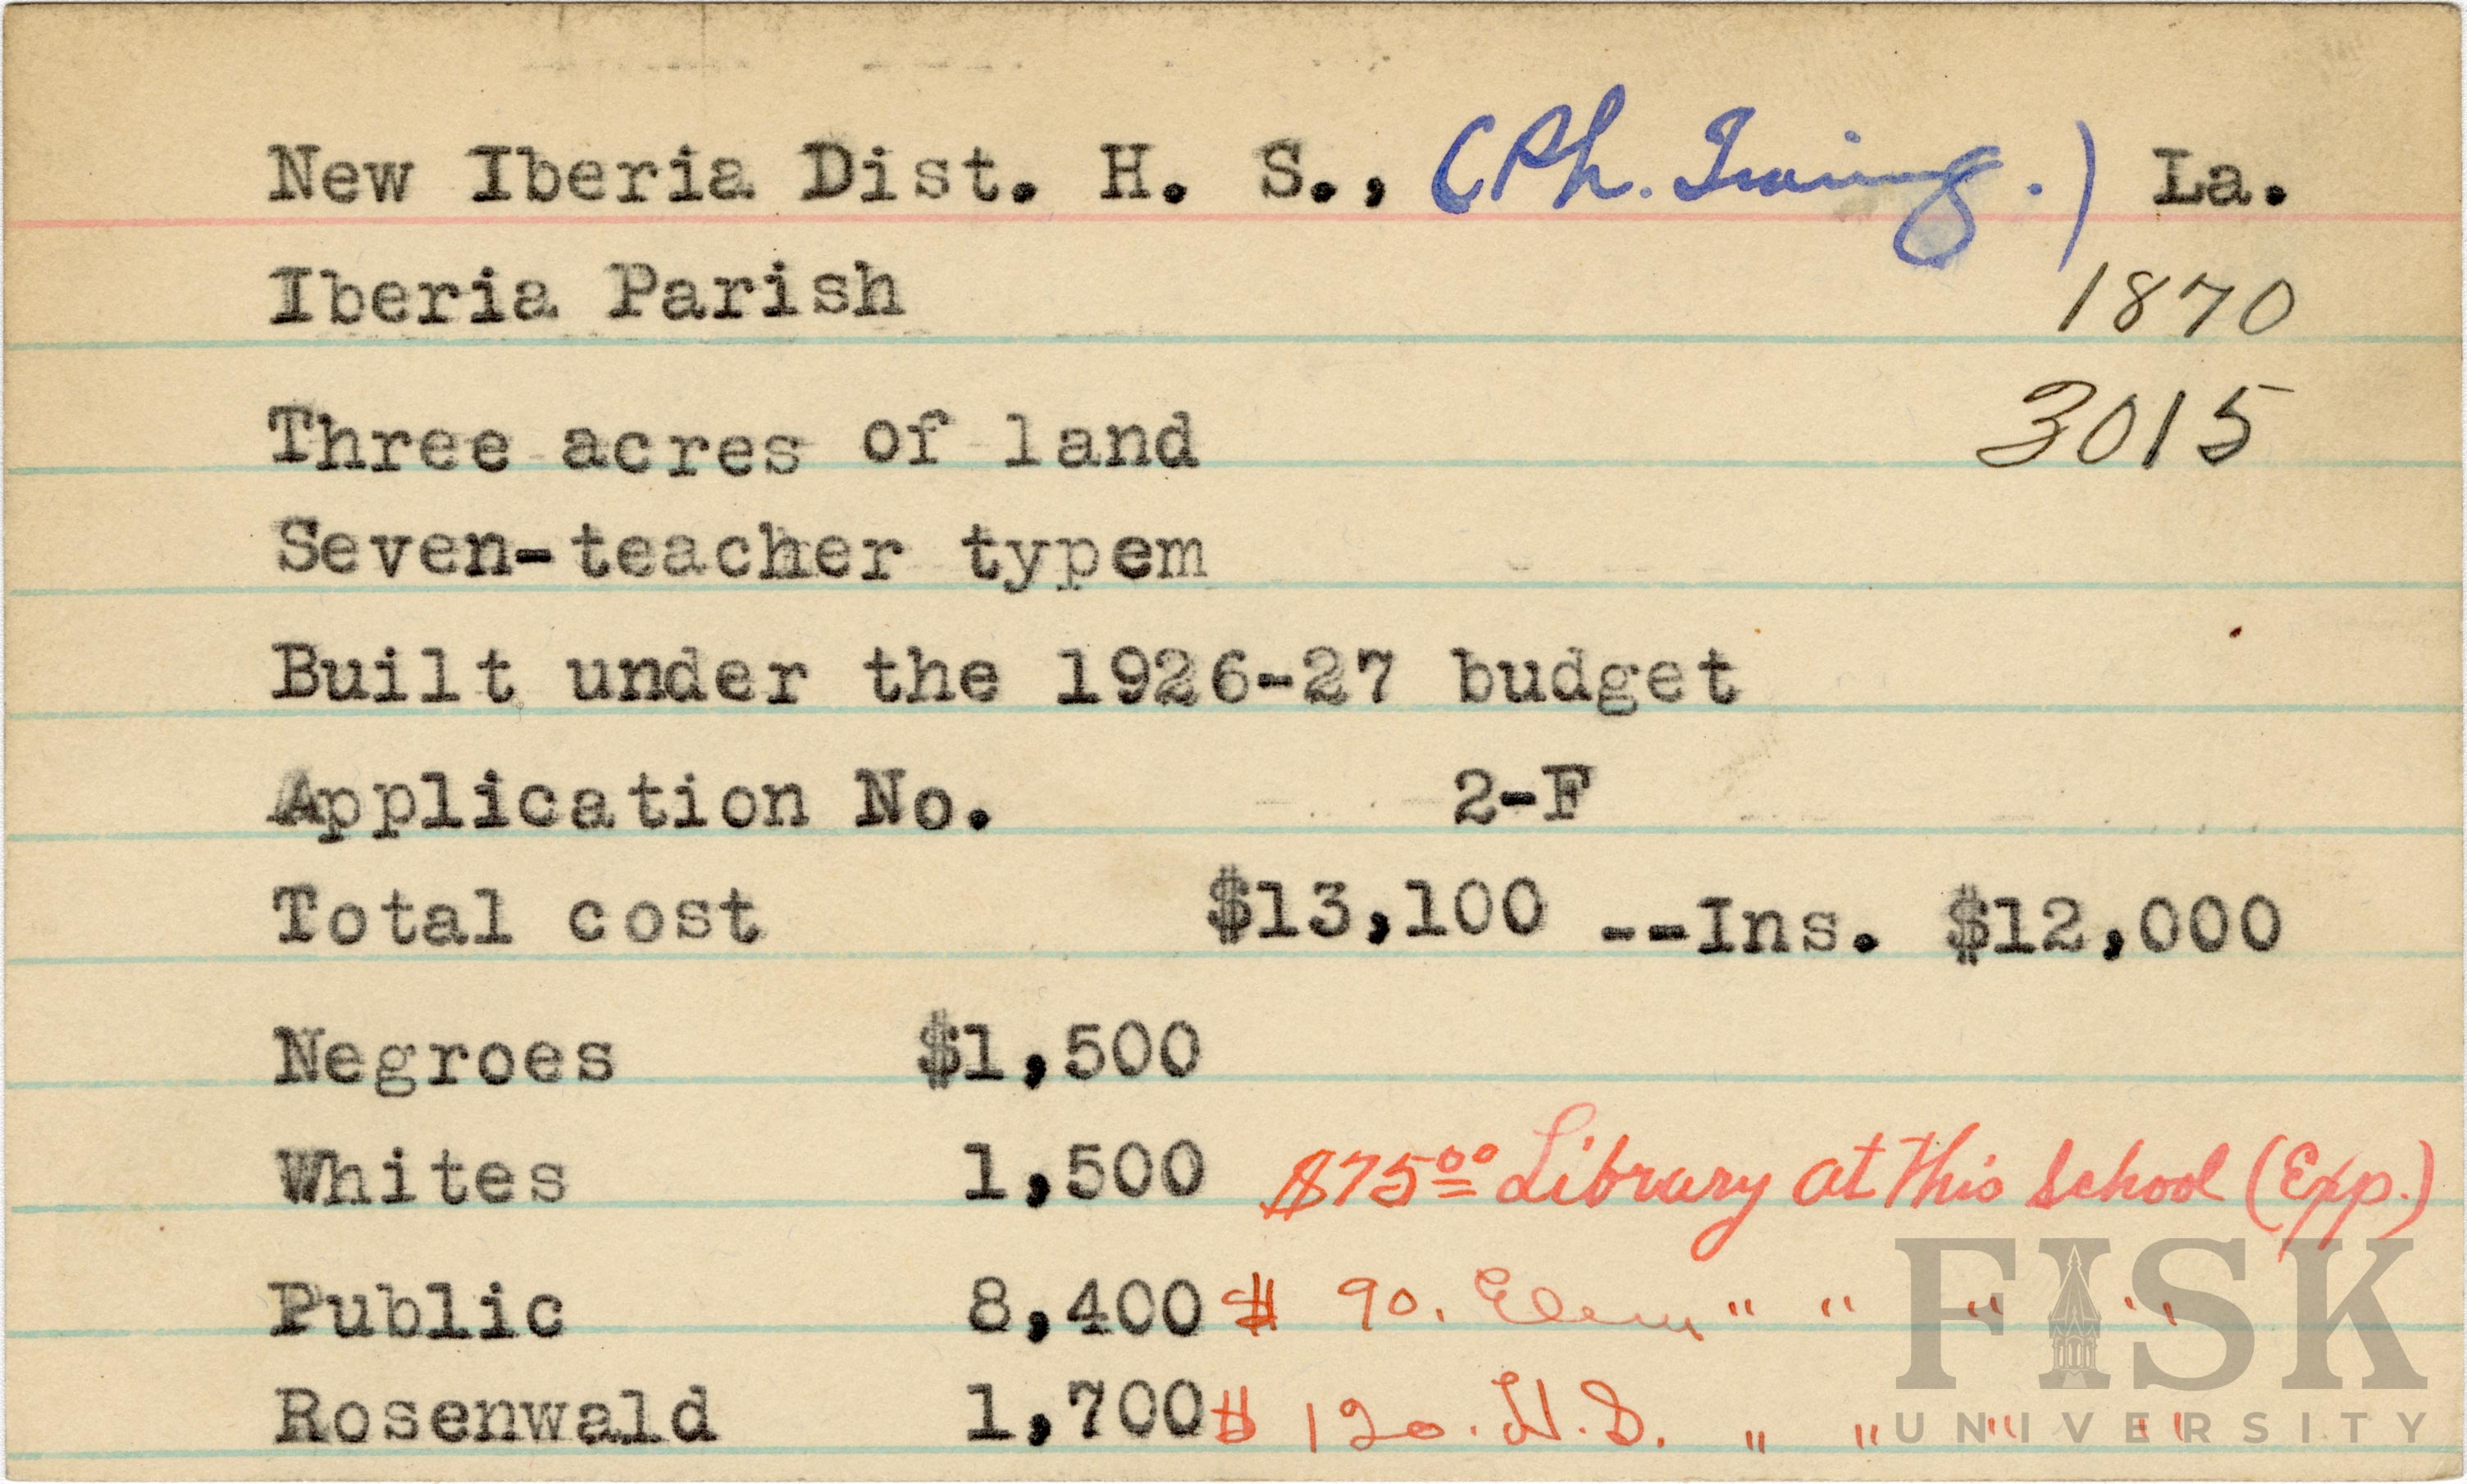 New Iberia Dist. H. S., (Ph. Training.) La.
Iberia Parish 1870
Three acres of land 3015
Seven-teacher typem
Built under the 1926-27 budget
Application No. 2-F
Total cost $13,100 --Ins. $12,000
Negroes $1,500
Whites 1,500 $75.00 Library at this school (Exp.)
Public 8,400 $ 90. Elem " " " "
Rosenwald 1,700 $ 120. H.S. " " " "
FISK
UNIVERSITY